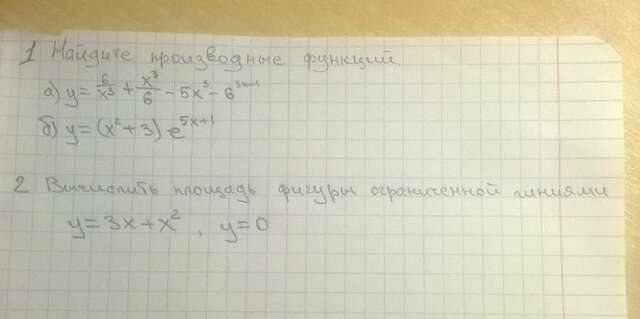 1 Найдите производные функций
а) y = 6/x³ + x³/6 - 5x³ - 6³ˣ⁺¹
б) y = (x² + 3) e⁵ˣ⁺¹
2 Вычислить площадь фигуры ограниченной линиями
y = 3x + x², y = 0